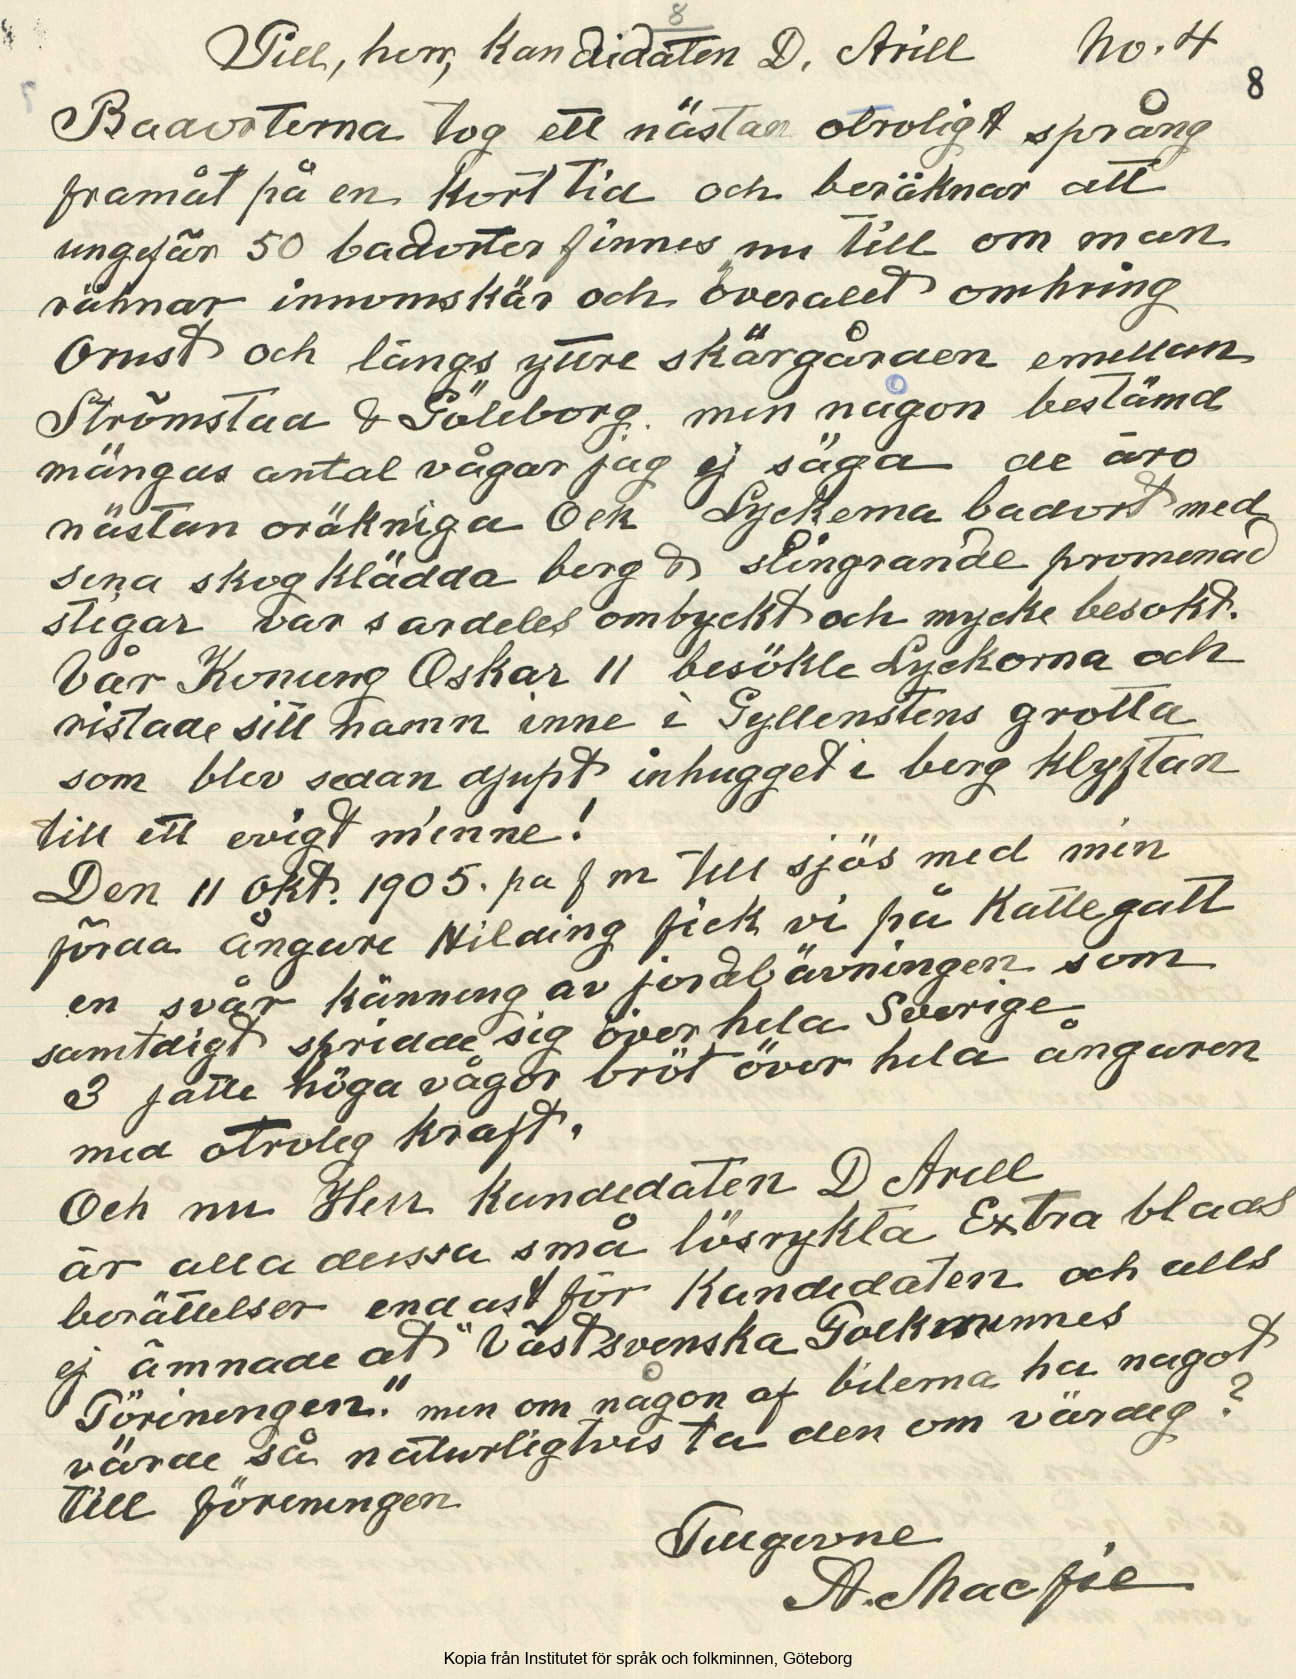 8
Till, herr, kandidaten D. Arill No. 4
8
Badorterna tog ett nästan otroligt språng
framåt på en kort tid och beräknar att
ungefär 50 badorter finnes nu till om man
räknar innomskär och överalet omkring
Orust och längs yttre skärgården emellan
Strömstad & Göteborg. men någon bestämd
mängas antal vågar jag ej säga de äro
nästan oräkniga Och Lyckerna badort med
sina skogklädda berg & slingrande promenad
stigar var sardeles ombyckt och mycke besökt.
Vår Konung Oskar II besökte Lyckorna och
ristade sitt namn inne i Gyllenstens grotta
som blev sedan djupt inhugget i berg klyftan
till ett evigt minne!
Den 11 okt. 1905. på f m till sjös med min
förda ångare Hilding fick vi på Kattegatt
en svår känning av jordbävningen som
samtdigt spridde sig över hela Sverige
3 jätte höga vågor bröt över hela ångaren
med otrolig kraft.
Och nu Herr Kandidaten D Arill
är alla dessa små lösrykta Extra blads
berättelser endast för Kandidaten och alls
ej ämnade at "Västsvenska Folkminnes
Föreningen." men om någon af bilerna ha något
värde så naturligtvis ta den om värdig?
till föreningen
Tillgivne
A. Macfie
Kopia från Institutet för språk och folkminnen, Göteborg